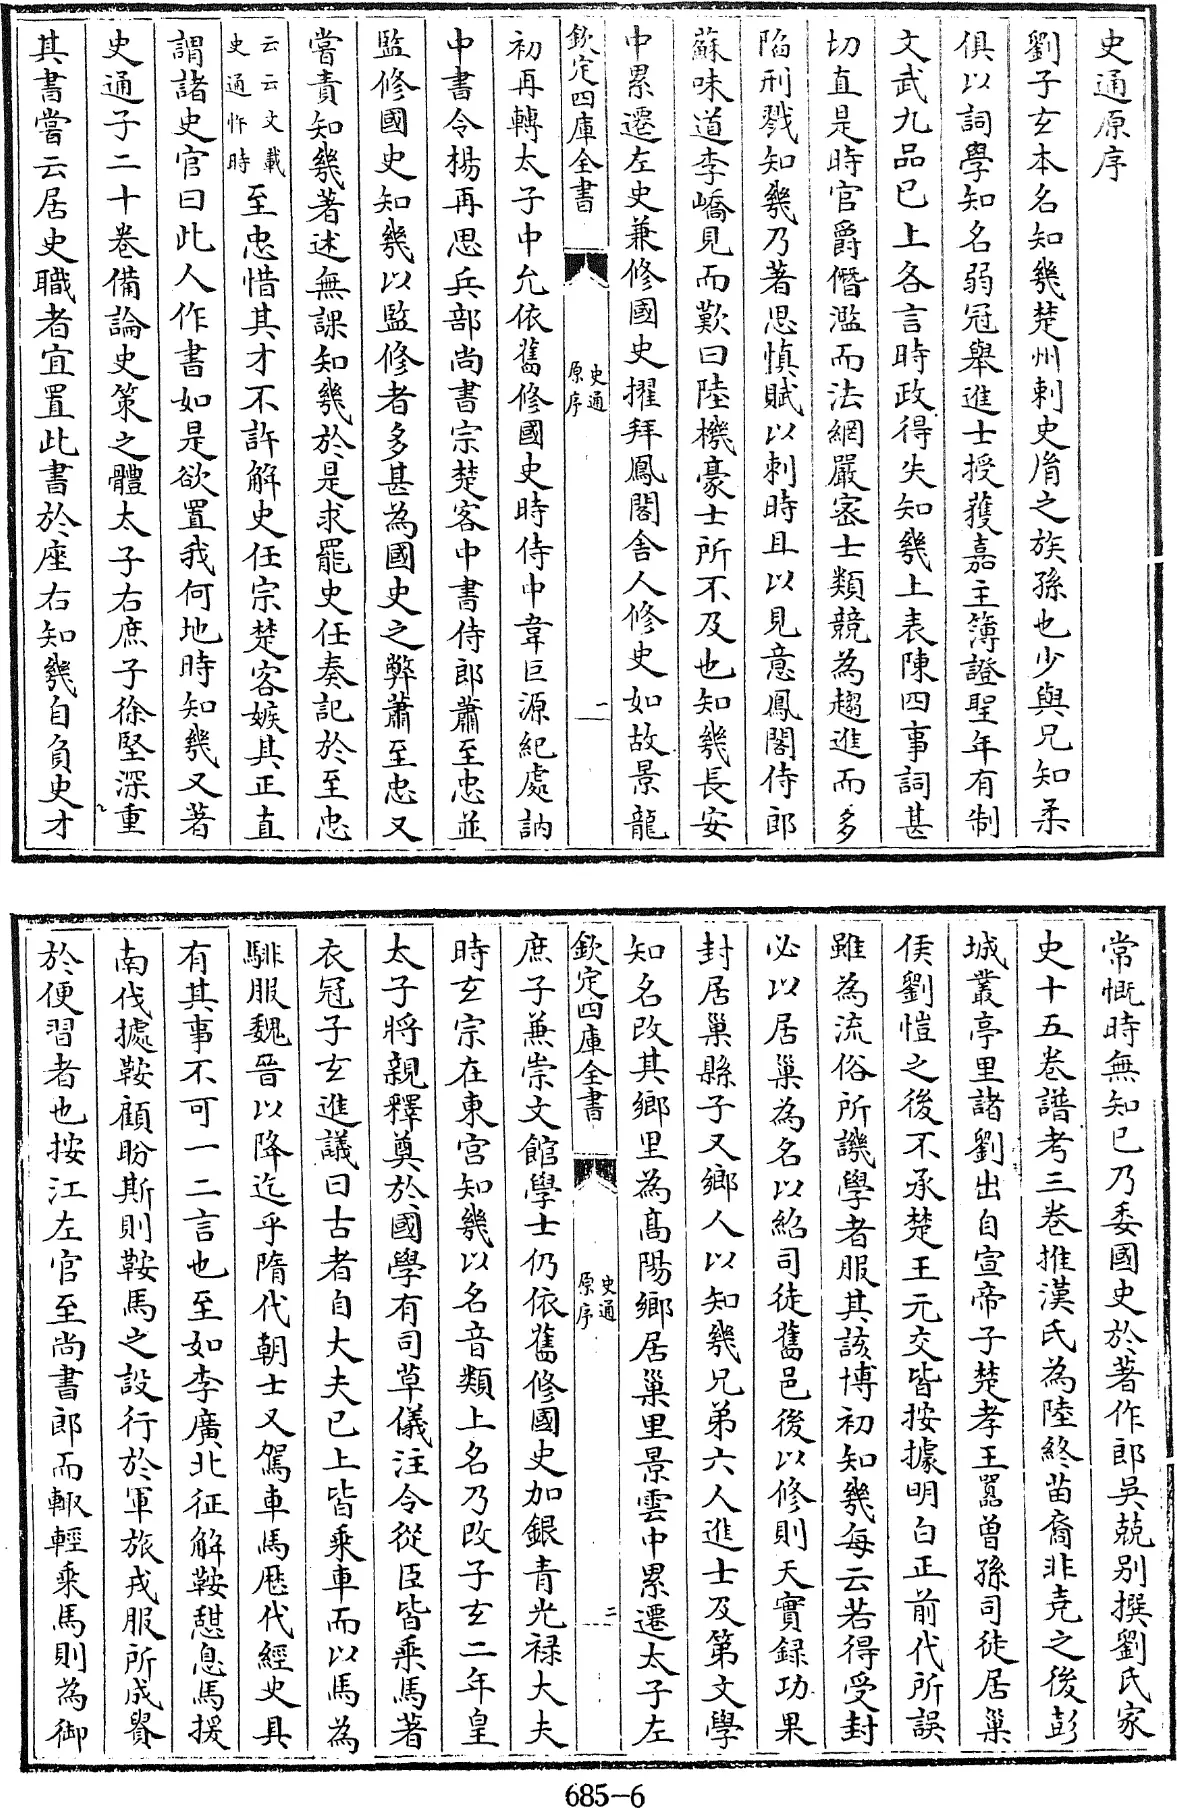 史通原序
劉子玄本名知幾楚州刺史胤之族孫也少與兄知柔
俱以詞學知名弱冠舉進士授獲嘉主簿證聖年有制
文武九品已上各言時政得失知幾上表陳四事詞甚
切直是時官爵僭濫而法網嚴密士類競為趨進而多
陷刑戮知幾乃著思慎賦以刺時且以見意鳳閣侍郎
蘇味道李嶠見而歎曰陸機豪士所不及也知幾長安
中累遷左史兼修國史擢拜鳳閣舍人修史如故景龍
欽定四庫全書
史通
原序
二
初再轉太子中允依舊修國史時侍中韋巨源紀處訥
中書令楊再思兵部尚書宗楚客中書侍郎蕭至忠並
監修國史知幾以監修者多甚為國史之弊蕭至忠又
嘗責知幾著述無課知幾於是求罷史任奏記於至忠
云云文載
史通忤時
至忠惜其才不許解史任宗楚客嫉其正直
謂諸史官曰此人作書如是欲置我何地時知幾又著
史通子二十卷備論史策之體太子右庶子徐堅深重
其書嘗云居史職者宜置此書於座右知幾自負史才
常慨時無知己乃委國史於著作郎吳兢别撰劉氏家
史十五卷譜考三卷推漢氏為陸終苗裔非堯之後彭
城叢亭里諸劉出自宣帝子楚孝王囂曾孫司徒居巢
侯劉愷之後不承楚王元交皆按據明白正前代所誤
雖為流俗所譏學者服其該博初知幾每云若得受封
必以居巢為名以紹司徒舊邑後以修則天實録功果
封居巢縣子又鄉人以知幾兄弟六人進士及第文學
知名改其鄉里為高陽鄉居巢里景雲中累遷太子左
欽定四庫全書
史通
原序
三
庶子兼崇文館學士仍依舊修國史加銀青光禄大夫
時玄宗在東宫知幾以名音類上名乃改子玄二年皇
太子將親釋奠於國學有司草儀注令從臣皆乘馬著
衣冠子玄進議曰古者自大夫已上皆乘車而以馬為
騑服魏晉以降迄乎隋代朝士又駕車馬歷代經史具
有其事不可一二言也至如李廣北征解鞍憇息馬援
南伐據鞍顧盼斯則鞍馬之設行於軍旅戎服所成貴
於便習者也按江左官至尚書郎而輙輕乘馬則為御
685-6